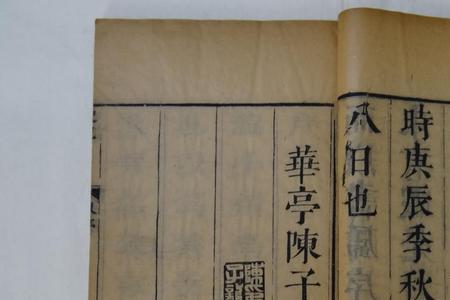 時庚辰季秋
八日也
華亭陳子